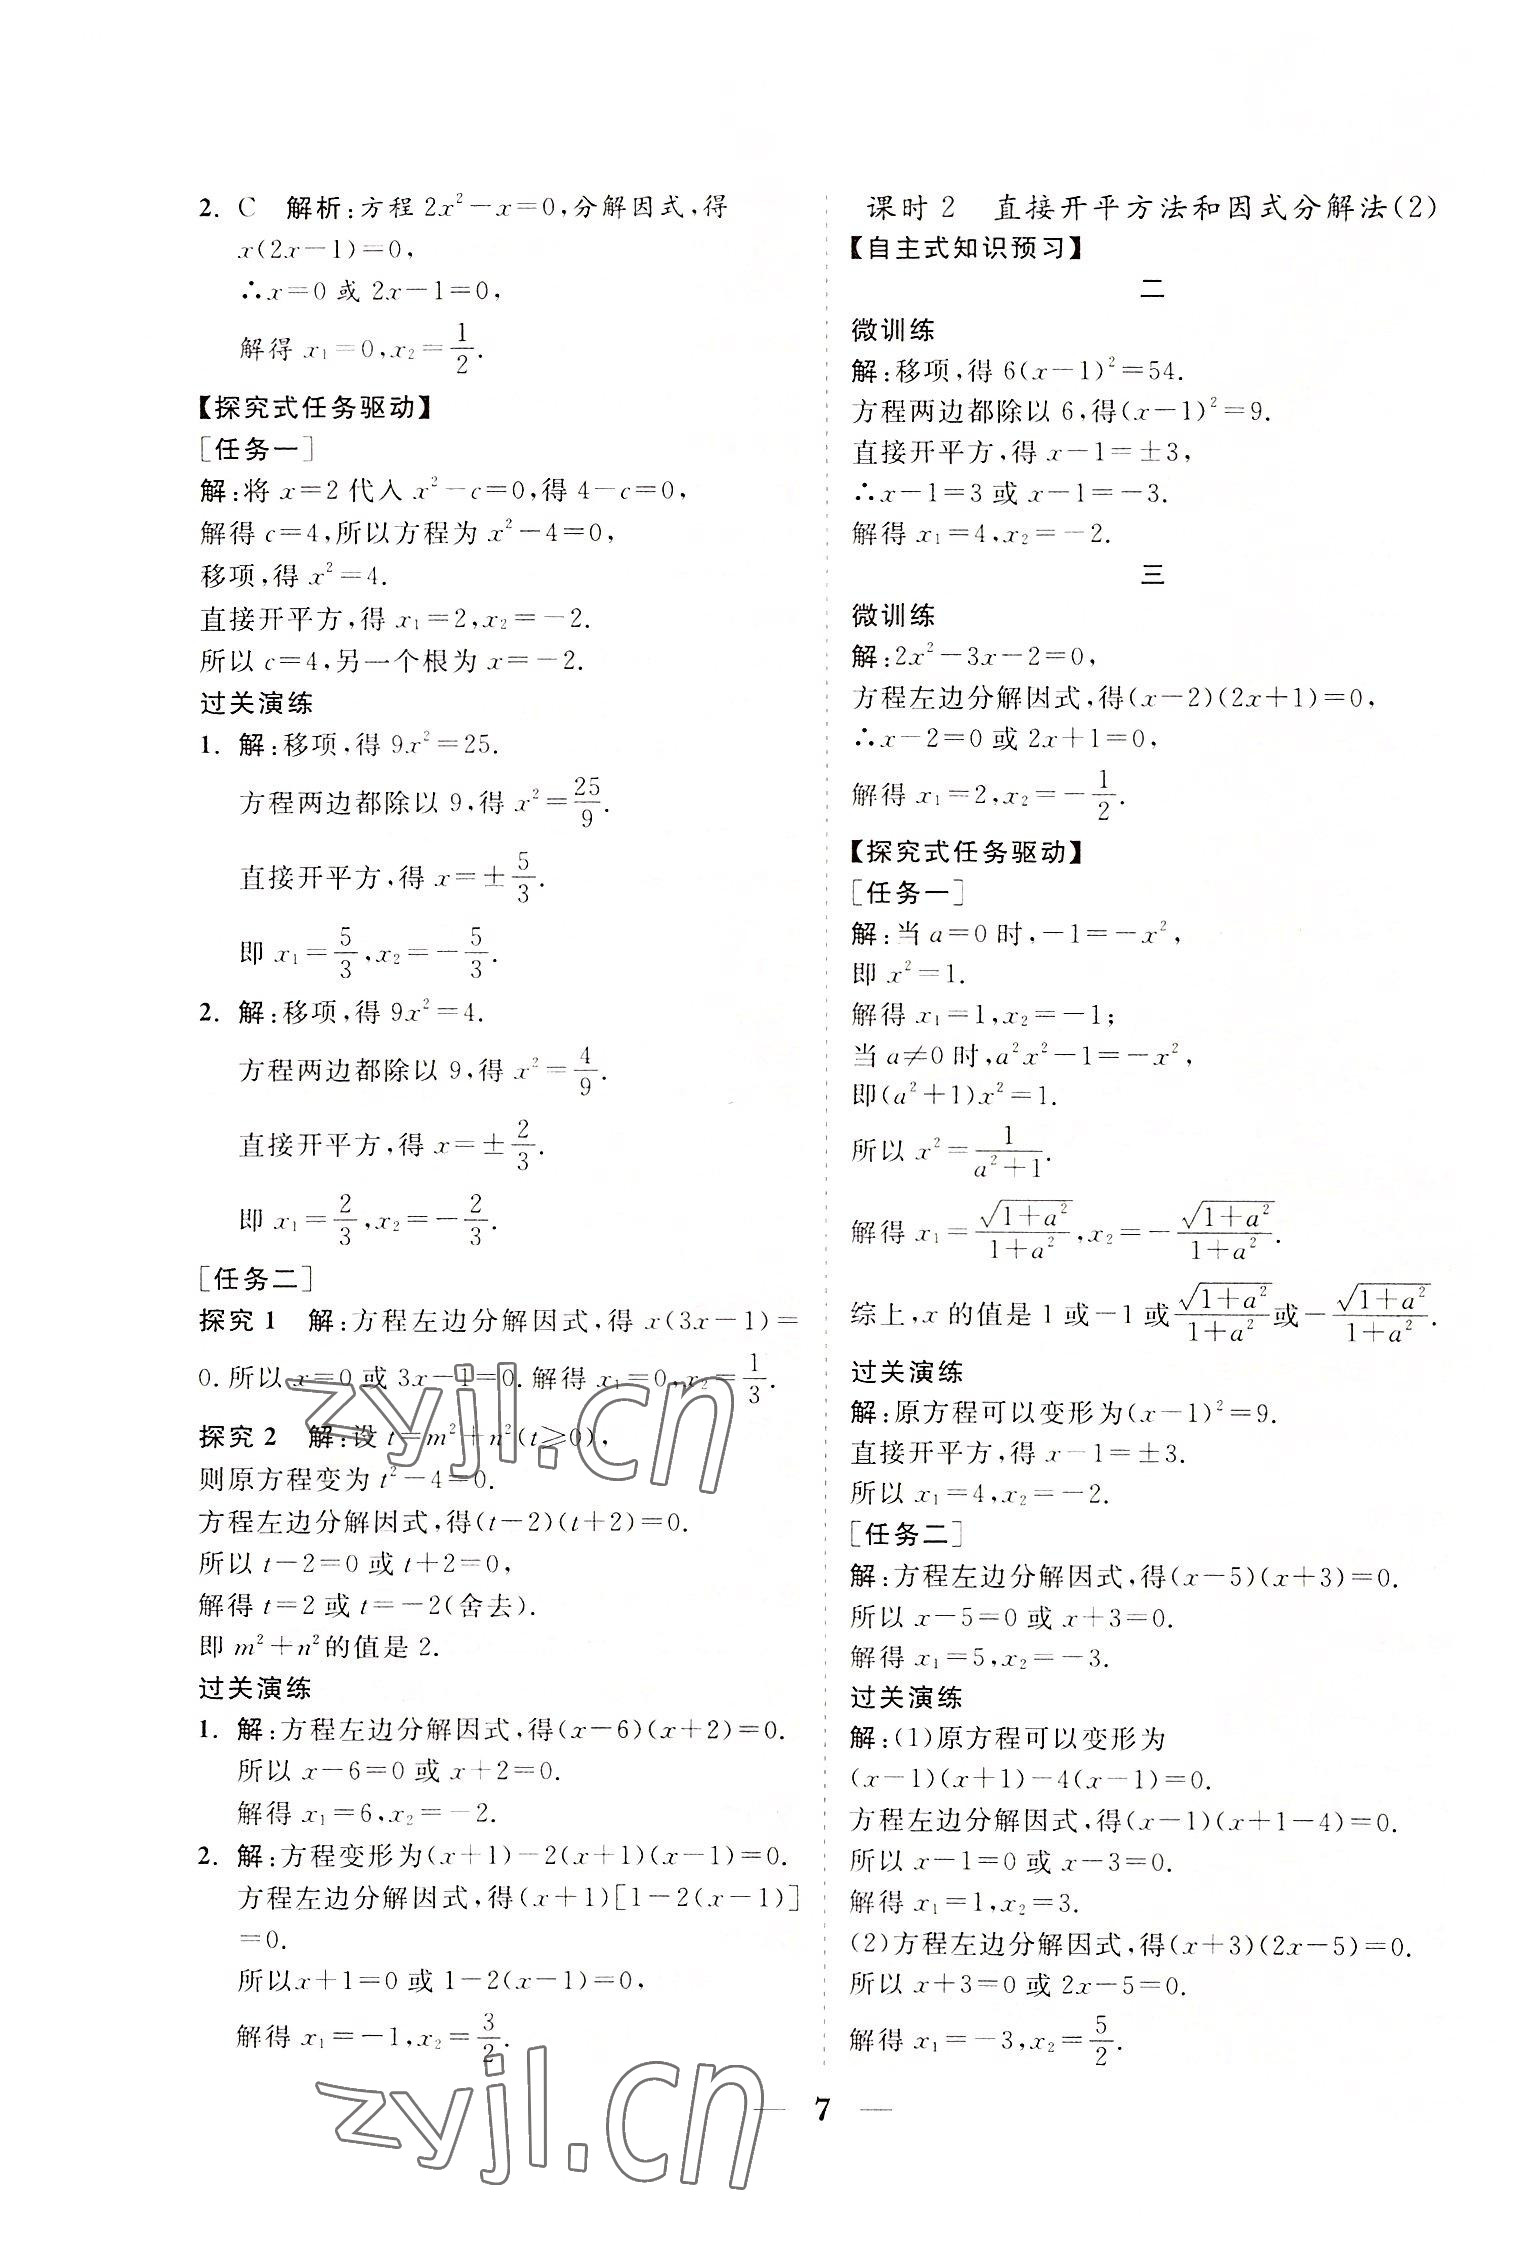 2. C 解析:方程 2x²-x=0,分解因式,得
x(2x-1)=0,
∴x=0 或 2x-1=0,
解得 x₁=0,x₂=1/2.
【探究式任务驱动】
[任务一]
解:将 x=2 代入 x²-c=0,得 4-c=0,
解得 c=4,所以方程为 x²-4=0,
移项,得 x²=4.
直接开平方,得 x₁=2,x₂=-2.
所以 c=4,另一个根为 x=-2.
过关演练
1. 解:移项,得 9x²=25.
方程两边都除以 9,得 x²=25/9.
直接开平方,得 x=±5/3.
即 x₁=5/3,x₂=-5/3.
2. 解:移项,得 9x²=4.
方程两边都除以 9,得 x²=4/9.
直接开平方,得 x=±2/3.
即 x₁=2/3,x₂=-2/3.
[任务二]
探究 1 解:方程左边分解因式,得 x(3x-1)=
0.所以 x=0 或 3x-1=0.解得 x₁=0,x₂=1/3.
探究 2 解:设 t=m²+n²(t≥0),
则原方程变为 t²-4=0.
方程左边分解因式,得(t-2)(t+2)=0.
所以 t-2=0 或 t+2=0,
解得 t=2 或 t=-2(舍去).
即 m²+n²的值是 2.
过关演练
1. 解:方程左边分解因式,得(x-6)(x+2)=0.
所以 x-6=0 或 x+2=0.
解得 x₁=6,x₂=-2.
2. 解:方程变形为(x+1)-2(x+1)(x-1)=0.
方程左边分解因式,得(x+1)[1-2(x-1)]
=0.
所以x+1=0 或 1-2(x-1)=0,
解得 x₁=-1,x₂=3/2.
课时 2 直接开平方法和因式分解法(2)
【自主式知识预习】
二
微训练
解:移项,得 6(x-1)²=54.
方程两边都除以 6,得(x-1)²=9.
直接开平方,得 x-1=±3,
∴x-1=3 或 x-1=-3.
解得 x₁=4,x₂=-2.
三
微训练
解:2x²-3x-2=0,
方程左边分解因式,得(x-2)(2x+1)=0,
∴x-2=0 或 2x+1=0,
解得 x₁=2,x₂=-1/2.
【探究式任务驱动】
[任务一]
解:当 a=0 时,-1=-x²,
即 x²=1.
解得 x₁=1,x₂=-1;
当 a≠0 时,a²x²-1=-x²,
即(a²+1)x²=1.
所以 x²=1/(a²+1).
解得 x₁=√(1+a²)/(1+a²),x₂=-√(1+a²)/(1+a²).
综上,x 的值是 1 或-1 或√(1+a²)/(1+a²)或-√(1+a²)/(1+a²).
过关演练
解:原方程可以变形为(x-1)²=9.
直接开平方,得 x-1=±3.
所以 x₁=4,x₂=-2.
[任务二]
解:方程左边分解因式,得(x-5)(x+3)=0.
所以 x-5=0 或 x+3=0.
解得 x₁=5,x₂=-3.
过关演练
解:(1)原方程可以变形为
(x-1)(x+1)-4(x-1)=0.
方程左边分解因式,得(x-1)(x+1-4)=0.
所以 x-1=0 或 x-3=0.
解得 x₁=1,x₂=3.
(2)方程左边分解因式,得(x+3)(2x-5)=0.
所以 x+3=0 或 2x-5=0.
解得 x₁=-3,x₂=5/2.
zyjl.cn
zyjl.cn
— 7 —